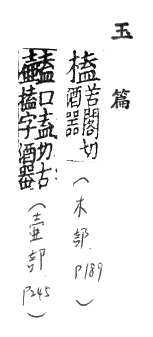 玉篇
榼 苦閤切
酒器
(木部 P189)
口盍切古
榼字酒器
(壺部 P245)